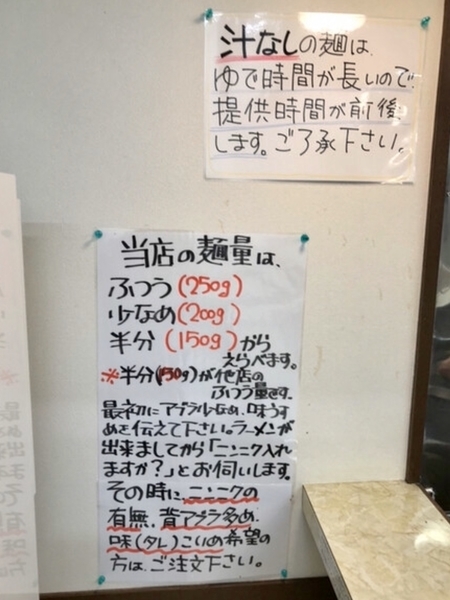 汁なしの麺は、
ゆで時間が長いので、
提供時間が前後
します。ご了承下さい。
当店の麺量は、
ふつう(250g)
少なめ(200g)
半分(150g)から
えらべます。
※半分(150g)が他店の
ふつう量です。
最初にアブラ少なめ、味うす
めを伝えて下さい。ラーメンが
出来ましてから「ニンニク入れ
ますか?」とお伺いします。
その時に、ニンニクの
有無、背アブラ多め、
味(タレ)こいめ希望の
方は、ご注文下さい。